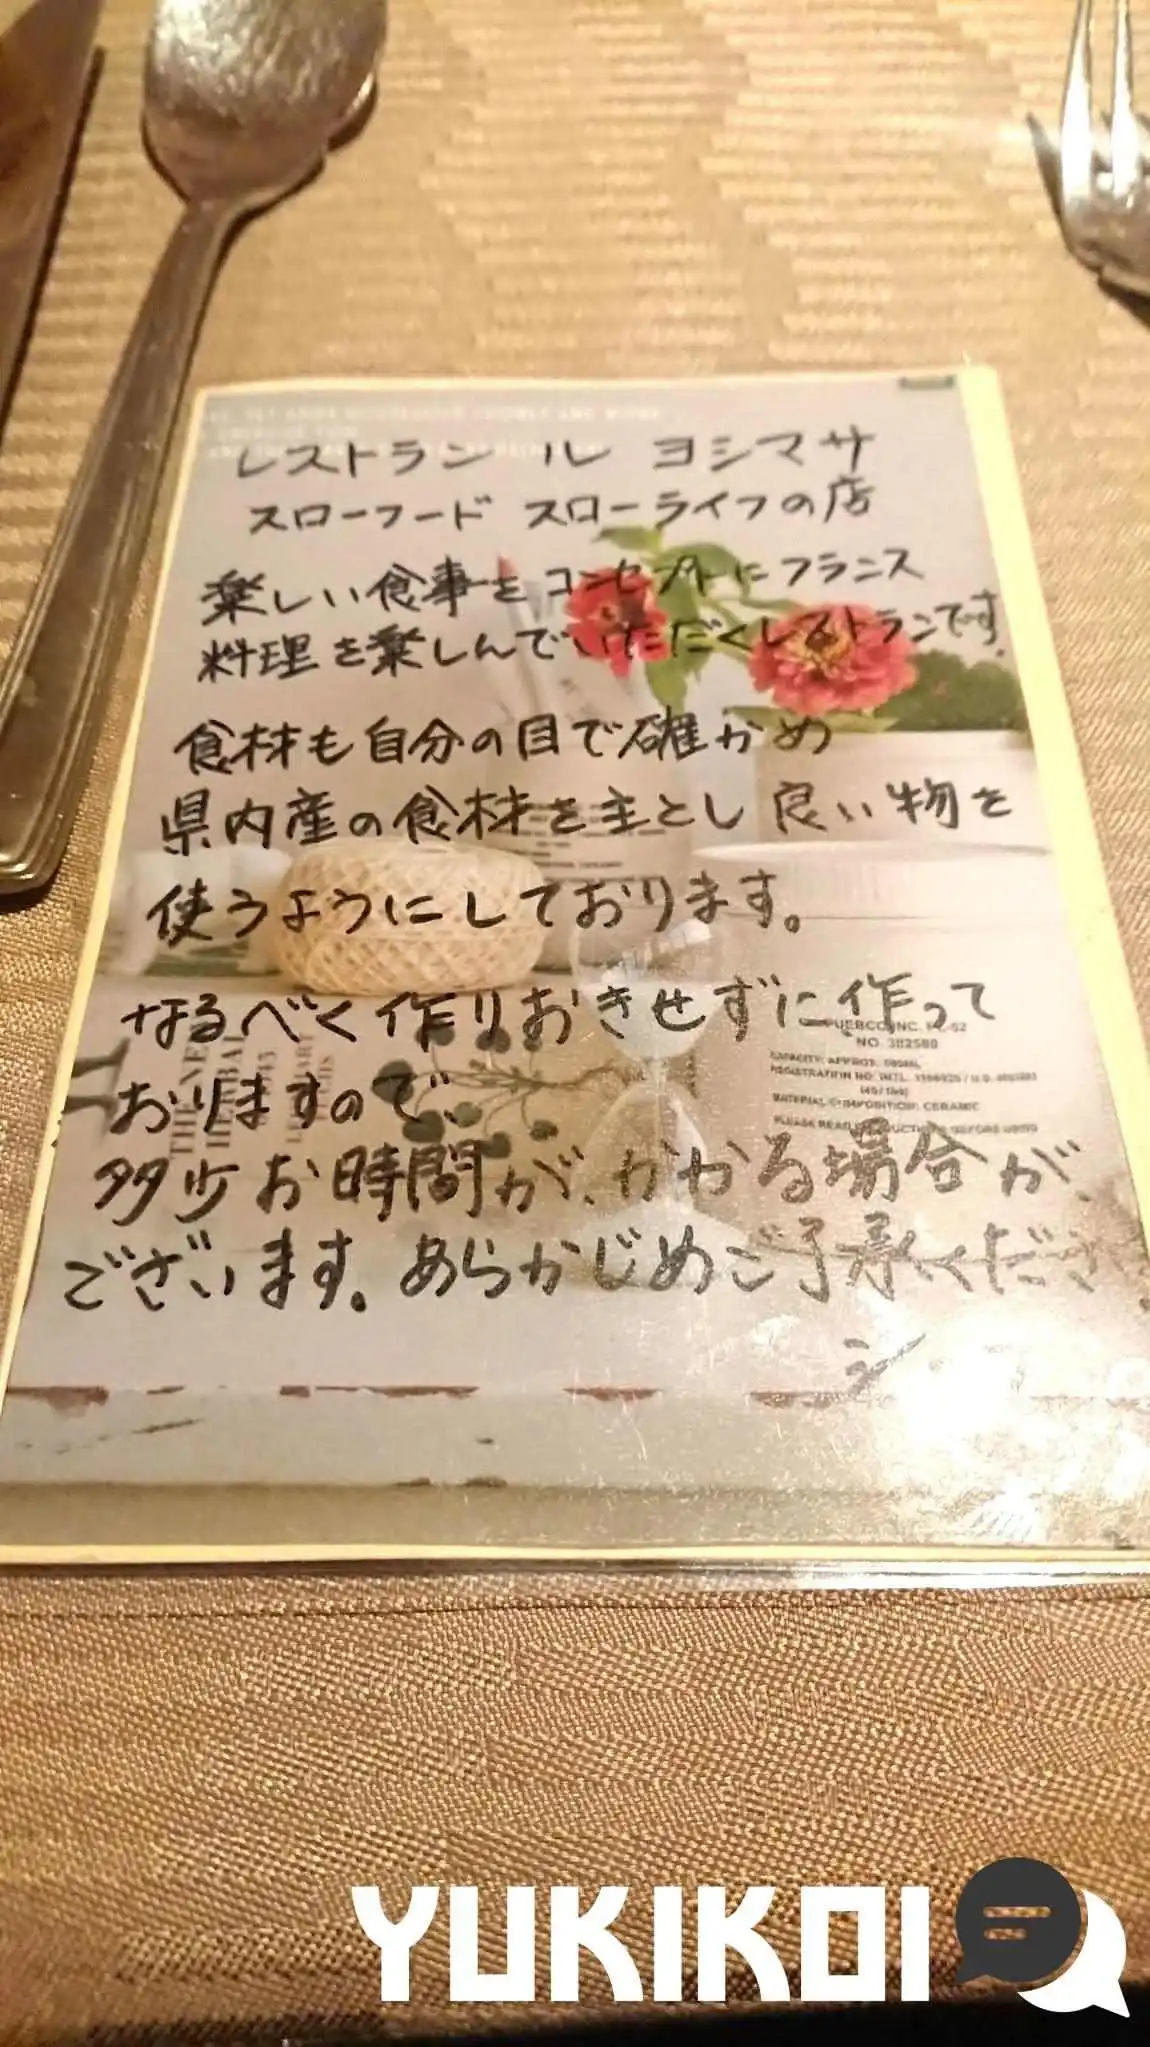 レストラン ル ヨシマサ
スローフード スローライフの店
楽しい食事をコンセプトにフランス
料理を楽しんでいただくレストランです。
食材も自分の目で確かめ
県内産の食材を主とし良い物を
使うようにしております。
なるべく作りおきせずに作って
おりますので、
多少お時間が、かかる場合が、
ございます。あらかじめご了承くださ
NO. 382588
MATERIAL COMPOSITION: CERAMIC
YUKIKOI